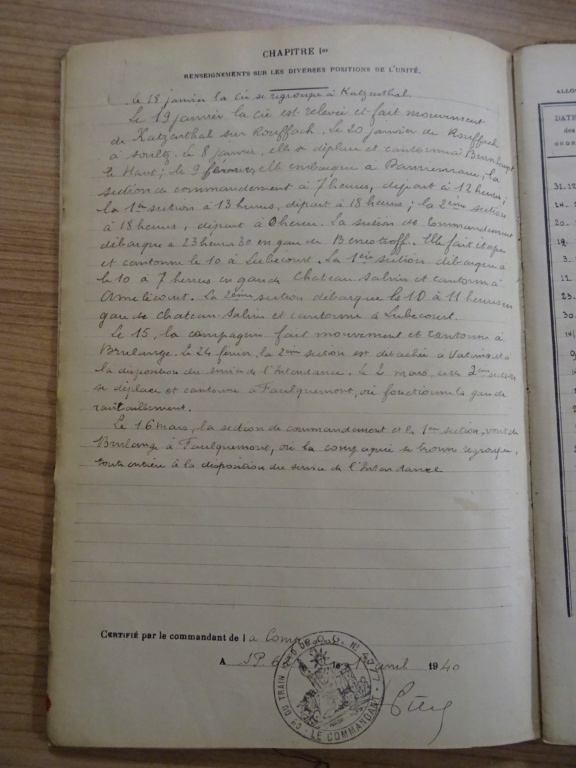 CHAPITRE Ier
RENSEIGNEMENTS SUR LES DIVERSES POSITIONS DE L'UNITÉ.
Le 18 janvier la Cie se regroupe à Katzenthal.
Le 19 janvier la Cie est relevée et fait mouvement
de Katzenthal sur Rouffach. Le 20 janvier de Rouffach
à Soultz. Le 8 janvier, elle se déplace et cantonne à
le Haut; le 9 février, elle embarque à ; la
section de commandement à 7 heures, départ à 12 heures;
la 1ère section à 13 heures, départ à 18 heures; la 2ème section
à 18 heures, départ à 0 heure. La section de Commandement
débarque à 23 heures 30 en gare de . Elle fait étape
et cantonne le 10 à Lubecourt. La 1ère section débarque
le 10 à 7 heures en gare de Chateau-Salins et cantonne à
Amelécourt. La 2ème section débarque le 10 à 11 heures en
gare de Chateau-Salins et cantonne à Lubecourt.
Le 15, la compagnie fait mouvement et cantonne à
Brulange. Le 24 février, la 2ème section est détachée à à
la disposition du service de l'Intendance. Le 2 mars, cette 2ème section
se déplace et cantonne à Faulquemont, où fonctionne la gare de
ravitaillement.
Le 16 mars, la section de commandement et la 1ère section, vont de
Brulange à Faulquemont, où la compagnie se trouve regroupée,
toute entière à la disposition du service de l'Intendance
CERTIFIÉ par le commandant de la Comp
A le avril 1940
DU TRAIN
LE COMMANDANT
ALLO
DATE
des
31.12